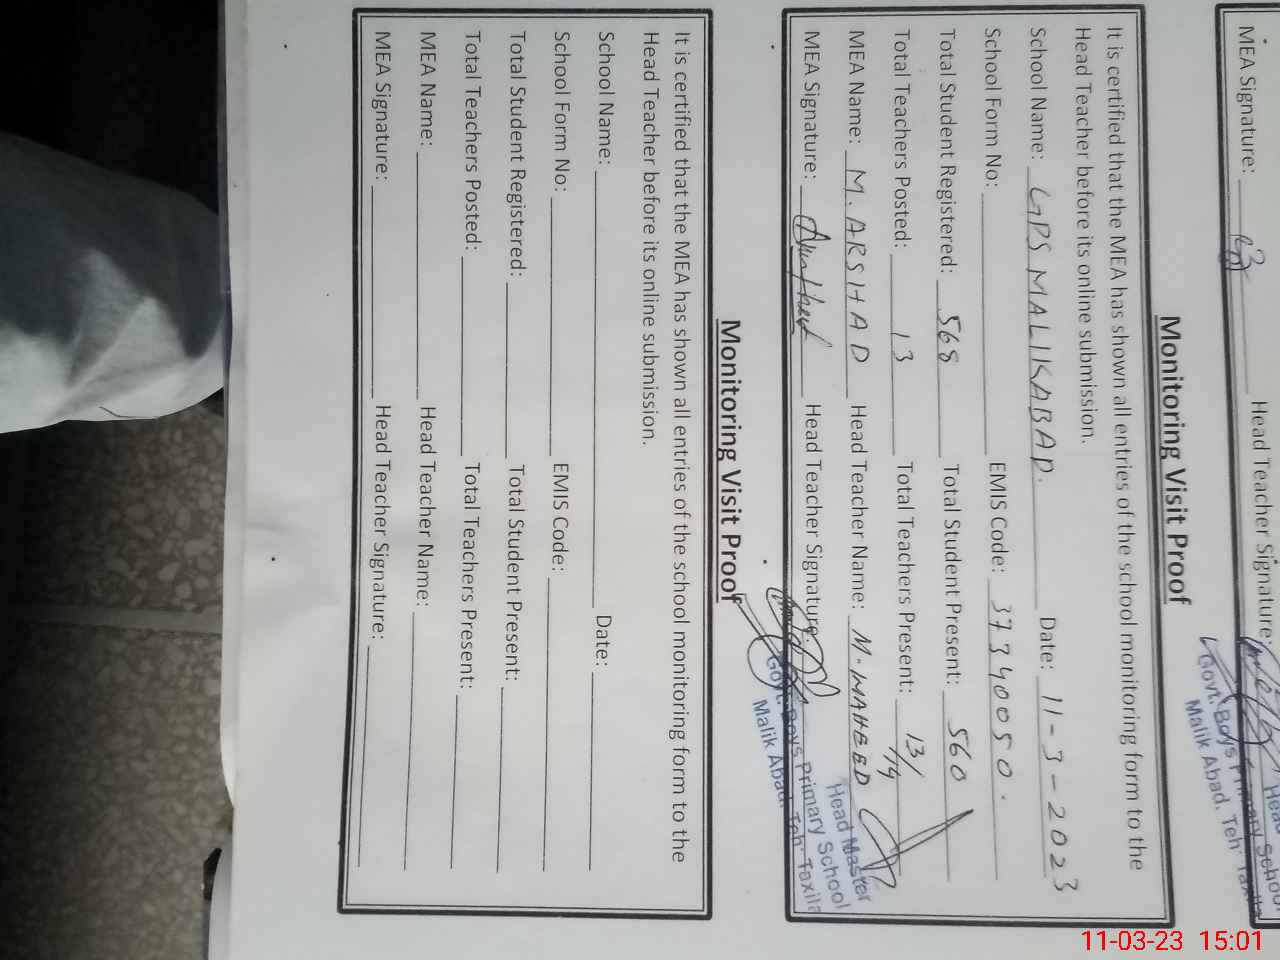 MEA Signature: Head Teacher Signature:
Govt. Boys Primary School
Malik Abad. Teh: Taxila
Monitoring Visit Proof
It is certified that the MEA has shown all entries of the school monitoring form to the
Head Teacher before its online submission.
School Name: GPS MALIKABAD. Date: 11-3-2023
School Form No: EMIS Code: 37340050.
Total Student Registered: 568 Total Student Present: 560
Total Teachers Posted: 13 Total Teachers Present: 13/
MEA Name: M. ARSHAD Head Teacher Name: M. MAHEED
MEA Signature: Head Teacher Signature:
Head Master
Govt. Boys Primary School
Malik Abad. Teh: Taxila
Monitoring Visit Proof
It is certified that the MEA has shown all entries of the school monitoring form to the
Head Teacher before its online submission.
School Name: Date:
School Form No: EMIS Code:
Total Student Registered: Total Student Present:
Total Teachers Posted: Total Teachers Present:
MEA Name: Head Teacher Name:
MEA Signature: Head Teacher Signature:
11-03-23 15:01